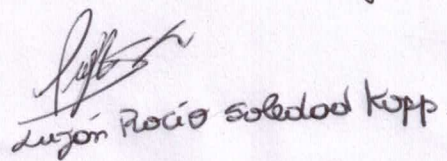 Luján Rocío Soledad Kopp